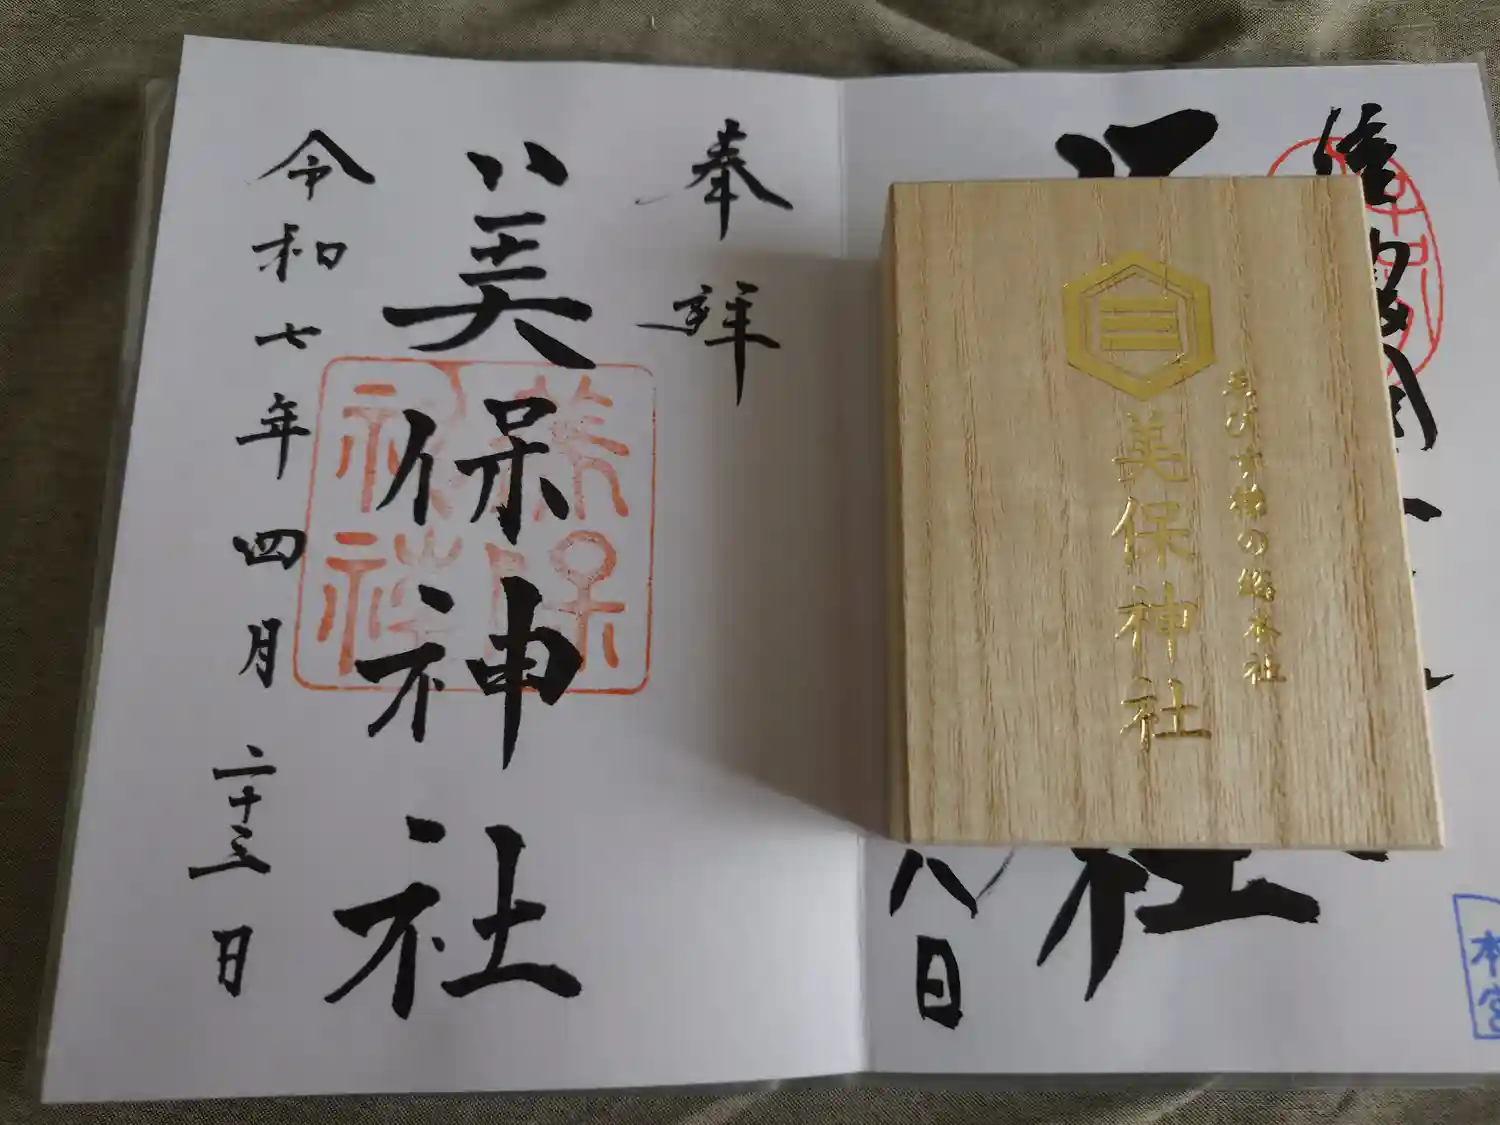 奉拝
美保神社
令和七年四月二十三日
美保
神社
えびす様の総本社
美保神社
八日
社
本宮